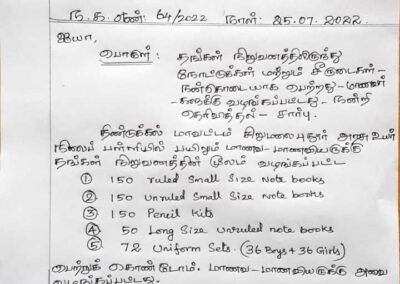 ந.க.எண்: 64/2022 நாள்: 25.07.2022.
ஐயா,
பொருள்: தங்கள் நிறுவனத்திலிருந்து
நோட்டுக்கள் மற்றும் சீருடைகள் -
நன்கொடையாக பெற்றது - மாணவர்
களுக்கு வழங்கப்பட்டது - நன்றி
தெரிவித்தல் - சார்பு.
திண்டுக்கல் மாவட்டம் சிறுமலைபுதூர் அரசு உயர்
நிலைப் பள்ளியில் பயிலும் மாணவ - மாணவியருக்கு
தங்கள் நிறுவனத்தின் மூலம் வழங்கப்பட்ட
① 150 ruled Small Size Note books
② 150 unruled Small Size Note books
③ 150 Pencil Kits
④ 50 Long Size unruled note books
⑤ 72 Uniform Sets. (36 Boys + 36 Girls)
பெற்றுக் கொண்டோம். மாணவ - மாணவியருக்கு அவை
வழங்கப்பட்டது.